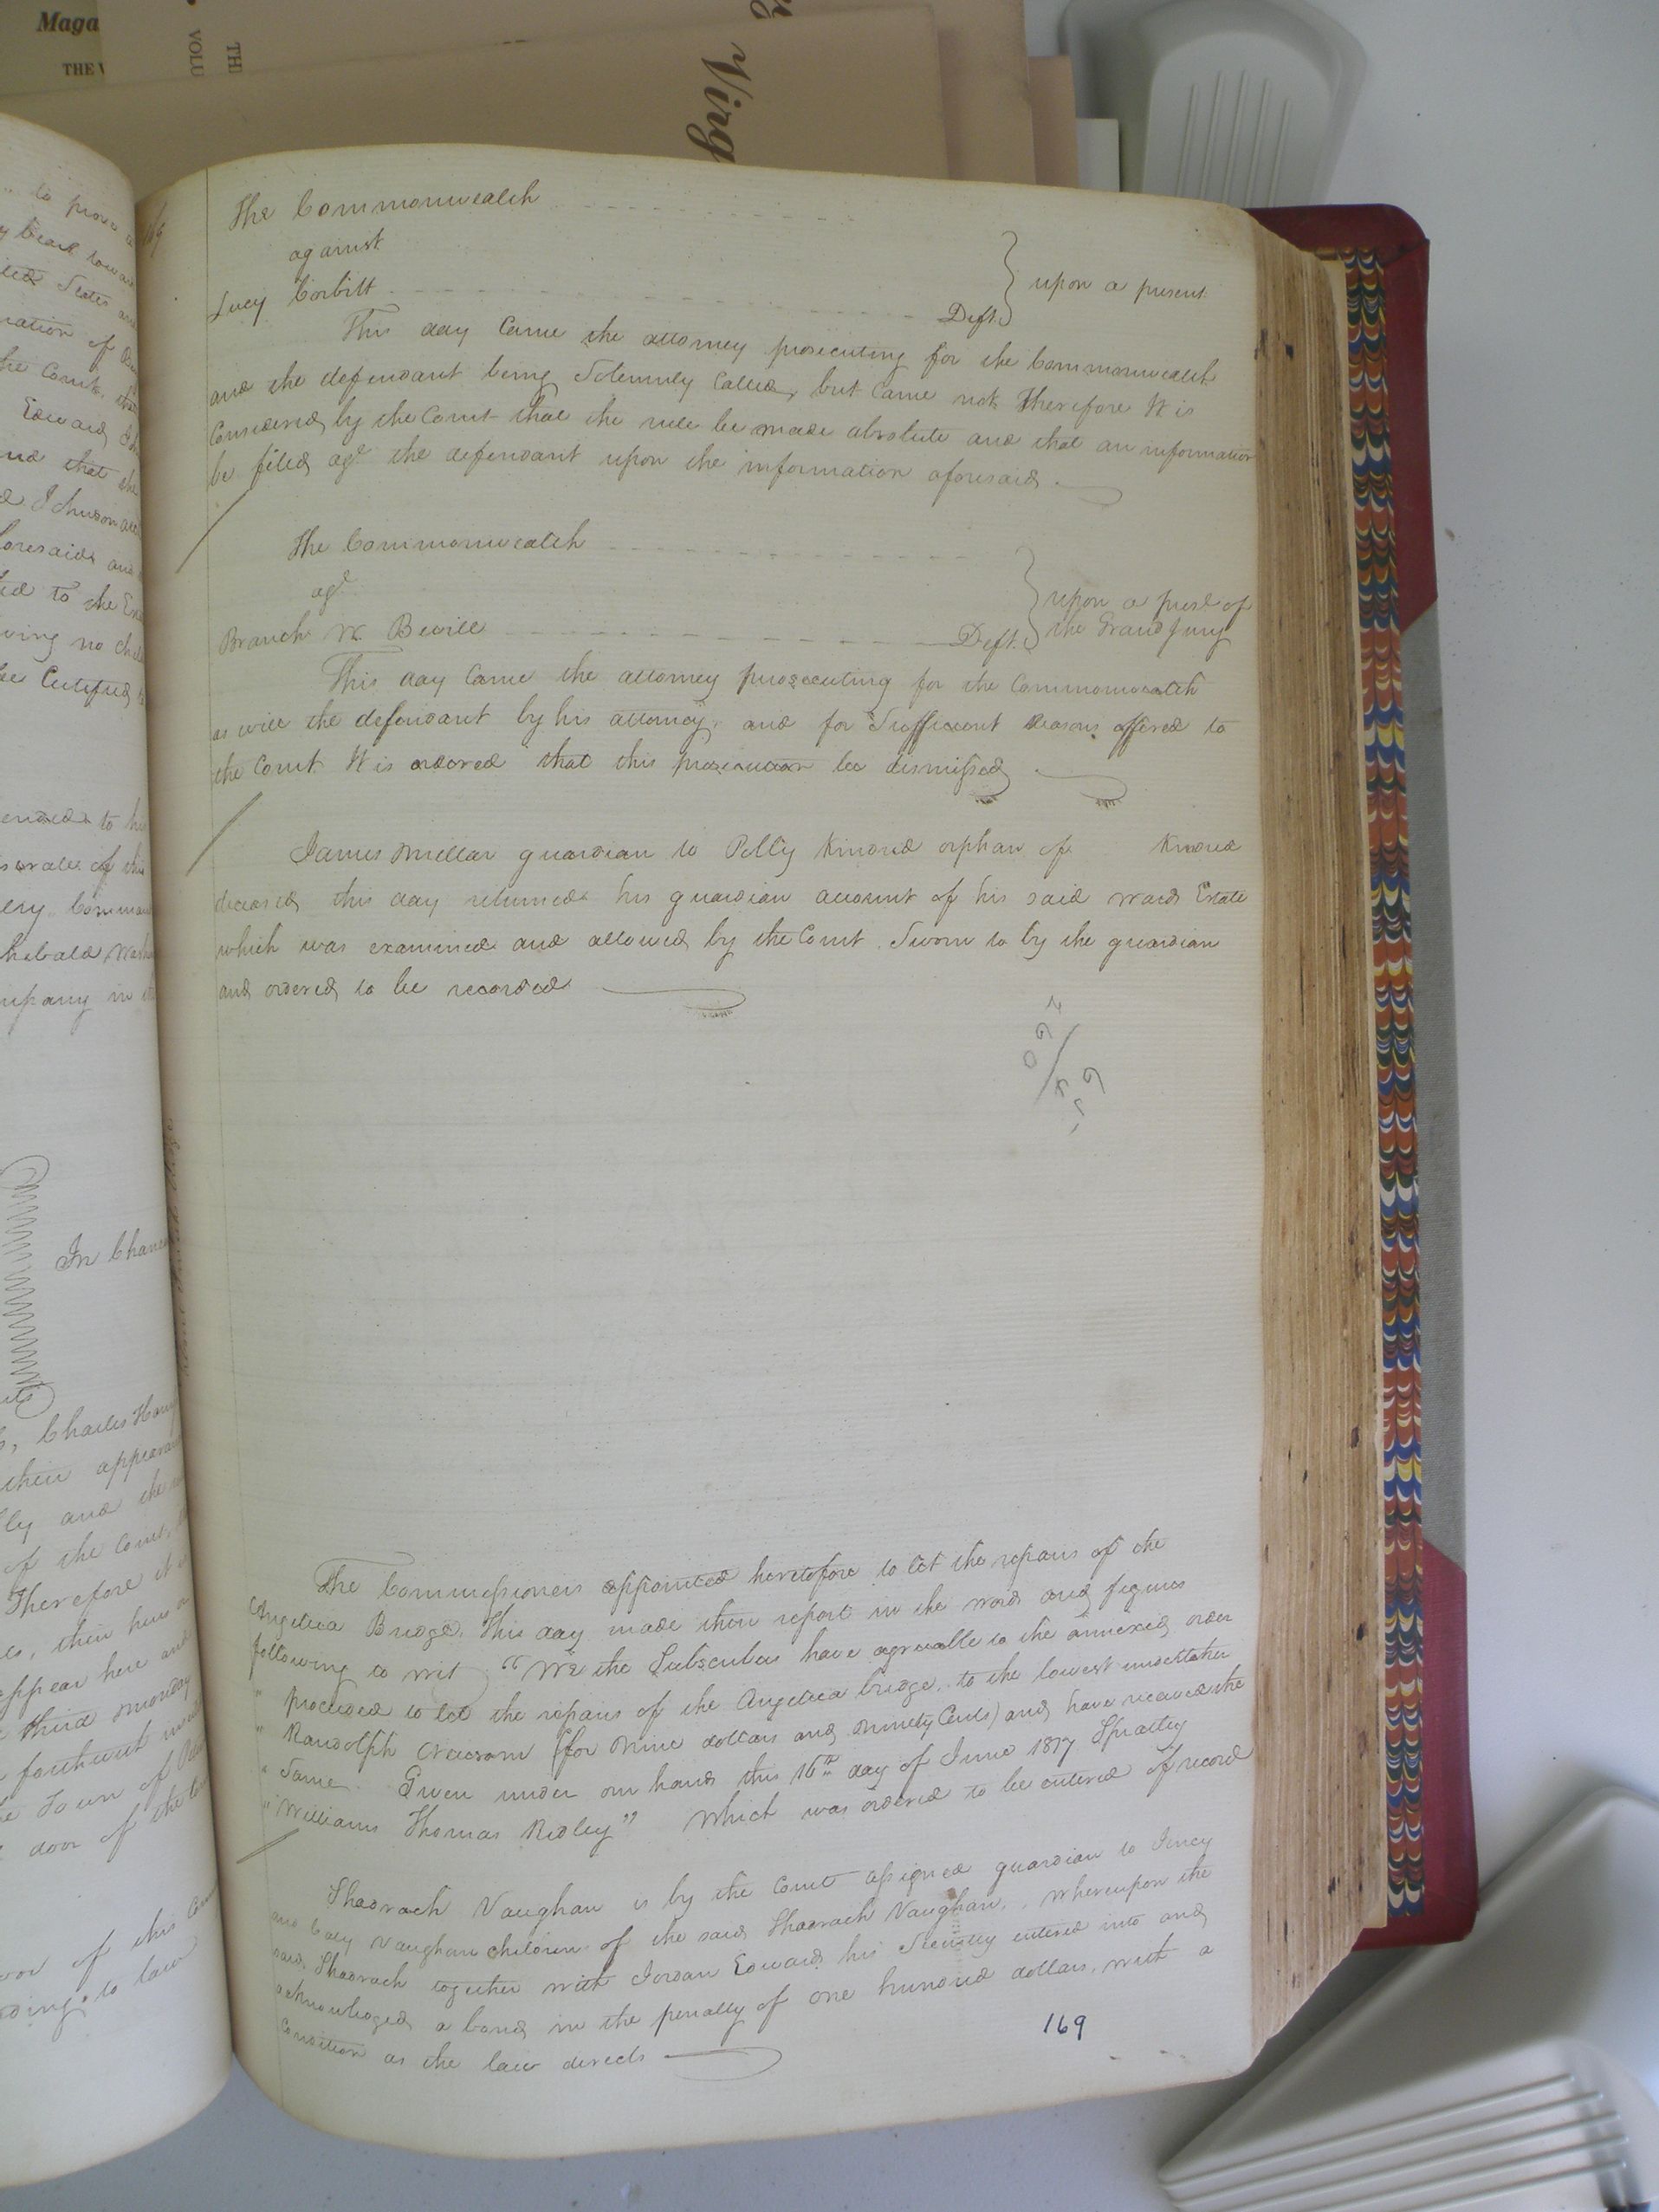 Maga
THE V
VOLU
TH
Virg
The Commonwealth
against
Lucy Corbitt Deft.
upon a present.
This day Came the attorney prosecuting for the Commonwealth
and the defendant being Solemnly Called, but Came not. Therefore It is
Considered by the Court that the rule be made absolute and that an information
be filed agt the defendant upon the information aforesaid.
The Commonwealth
agt
Branch W. Bevill Deft.
upon a prest of
the Grand jury
This day Came the attorney prosecuting for the Commonwealth
as will the defendant by his attorney, and for Sufficient Reasons offered to
the Court. It is ordered that this prosecution be dismissed
James Millar guardian to Polly Kindred orphan of Kindred
deceased, this day returned his guardian account of his said Wards Estate
which was examined and allowed by the Court. Sworn to by the guardian
and ordered to be recorded.
The Commissioners appointed heretofore to let the repairs of the
Angelica Bridge. This day made their report in the words and figures
following to wit "We the Subscribers have agreeable to the annexed order
" proceeded to let the repairs of the Angelica bridge, to the lowest undertaker
" Randolph Newsom (for Nine dollars and Ninety Cents) and have received the
" Same. Given under our hands this 16th day of June 1817 Spratley
" Williams Thomas Ridley" Which was ordered to be entered of record
Shadrach Vaughan is by the Court assigned guardian to Jincy
and Vaughan children of the said Shadrach Vaughan, Whereupon the
said Shadrach together with Jordan Edwards his Security entered into and
acknowledged a bond in the penalty of one hundred dollars, with a
Condition as the law directs
169
to prove
United States
of
the Court, that
Edward
and that the
Johnson
aforesaid and
to the
no
be Certified
to
of this
in
In Chancery
Charles
their appearance
and the
of the Court,
Therefore it
appear here and
third monday
forthwith
Town of
door of the
of this
to law